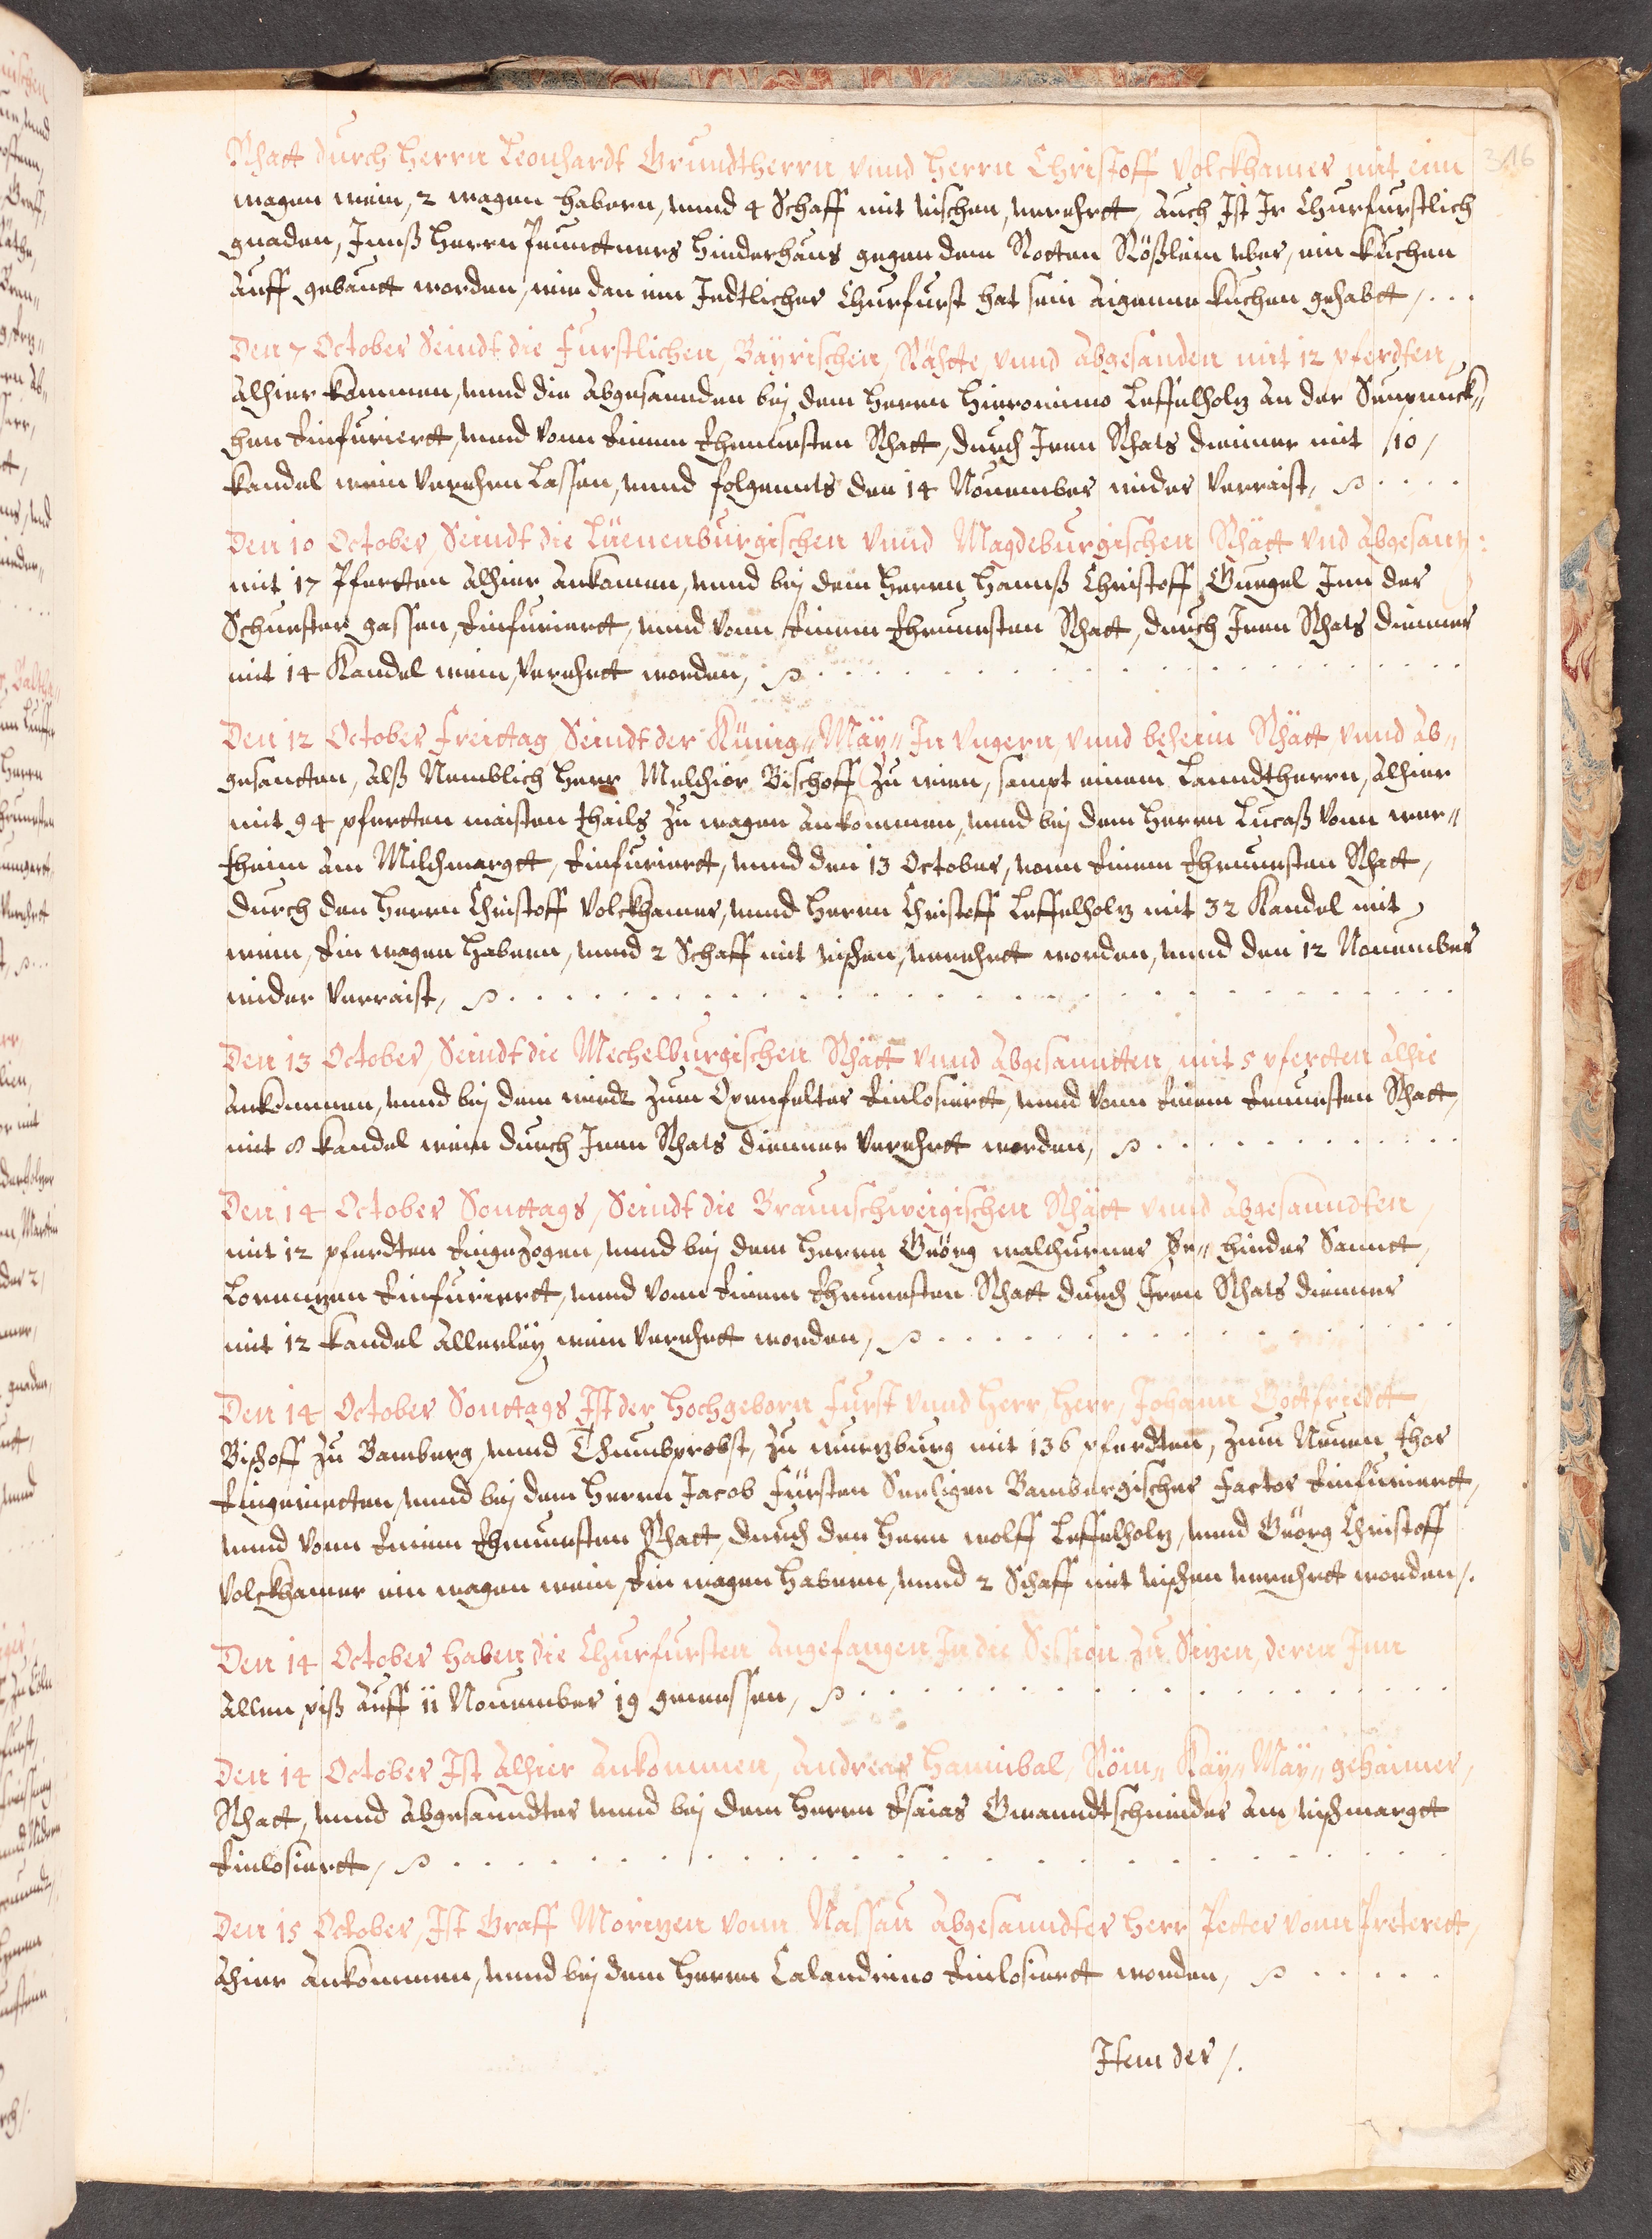 316
Rhatt durch Herrn Leonhardt Grundtherrn vnnd Herrn Christoff Volckhamer mit eim
wagen wein, 2 wagen habern, vnnd 4 Schaff mit vischen, verehrtt, auch Ist Ir Churfurstlich
gnaden, Innß Herrn Hinderhaus gegen dem Rotten Rößlein vber, ein kuchen
auff gebautt worden, wie dan ein Jedtlicher Churfurst hat sein aigenne kuchen gehabtt, . . .
Den 7 October Seindt die furstlichen, Bayrischen, Rähtte, vnnd abgesanden mit 12 pferdten,
alhier kommen, vnnd die abgesannden bej dem Herrn Hieronimo Leffelholz an der
hen Einfuriertt, vnnd vonn Einem Ehrnuesten Rhatt, durch Iren Rhats dienner mit 10,
kandel wein verehren Lassen, vnnd folgennts den 14 Nouember wider verraist,
Den 10 October, Seindt die Lüenenburgischen vnnd Magdeburgischen Rhätt vnd abgesant:
mit 17 Pfertten alhier ankomen, vnnd bej dem Herrn Hannß Christoff Gugel Inn der
Schuester gassen, Einfuriertt, vnnd vonn Einem Ehrnuesten Rhatt, durch Iren Rhats dienner
mit 14 Kandel wein, verehrtt worden,
Den 12 October Freittag, Seindt der Künig" May" In Vngern, vnnd beheim Rhätt, vnnd ab"
gesantten, alß Nemblich Herr Melchior Bischoff zu wien, sampt einem Lanndtherrn, alhier
mit 94 pfertten maisten theils zu wagen ankommen, vnnd bej dem Herrn Lucaß vonn wer"
theim am Milchmargtt, Einfuriertt, vnnd den 13 October, vonn Einem Ehrnuesten Rhatt,
durch den Herrn Christoff Volckhamer, vnnd Herrn Christoff Leffelholz mit 32 Kandel mit
wein, Ein wagen habern, vnnd 2 Schaff mit vischen, verehrtt worden, vnnd den 12 Nouember
wider verraist,
Den 13 October, Seindt die Mechelburgischen Rhätt vnnd abgesanntten, mit 5 pfertten alhie
ankommen, vnnd bej dem wirdt zum Ochsenfelter Einlosiertt, vnnd vonn Einem Ernuesten Rhatt,
mit 8 kandel wein durch Iren Rhats dienner verehrtt worden,
Den 14 October Sonttags, Seindt die Braunschweigischen Rhätt vnnd abgesanndten,
mit 12 pferdten Eingezogen, vnnd bej dem Herrn Geörg walthurner hinder Sannct,
Lorennzen Einfuriertt, vnnd vonn Einem Ehrnuesten Rhatt durch Iren Rhats dienner
mit 12 kandel allerley wein verehrtt worden,
Den 14 October Sonttags Ist der Hochgeborn Furst vnnd Herr, Herr, Johann Gottfriedtt,
Bischoff zu Bamberg, vnnd Thumbprobst, zu wurzburg mit 136 pferdten, zum Neuen thor
Eingerietten, vnnd bej dem Herrn Jacob Fürsten Seeligen Bambergischer Factor Einfuriertt,
vnnd vonn Einem Ehrnuesten Rhatt, durch den Herrn wolff Leffelholz, vnnd Geörg Christoff
Volckhamer ein wagen wein, Ein wagen habern, vnnd 2 Schaff mit vischen verehrtt worden,.
Den 14 October haben die Churfursten angefangen In die Session zu Sizen, deren Inn
allen, piß auff 11 Nouember 19 gewessen,
Den 14 October Ist alhier ankommen, andreas Hannibal, Röm" Kay" May" gehaimer,
Rhatt, vnnd abgesanndter vnnd bej dem Herrn Esaias Gwanndtschneider am vischmargtt
Einlosiertt,
Den 15 October, Ist Graff Morizen vonn Nassau abgesanndter Herr Petter vonn
alhier ankommen, vnnd bej dem Herrn Calandrino Einlosiertt worden,
Item der /.